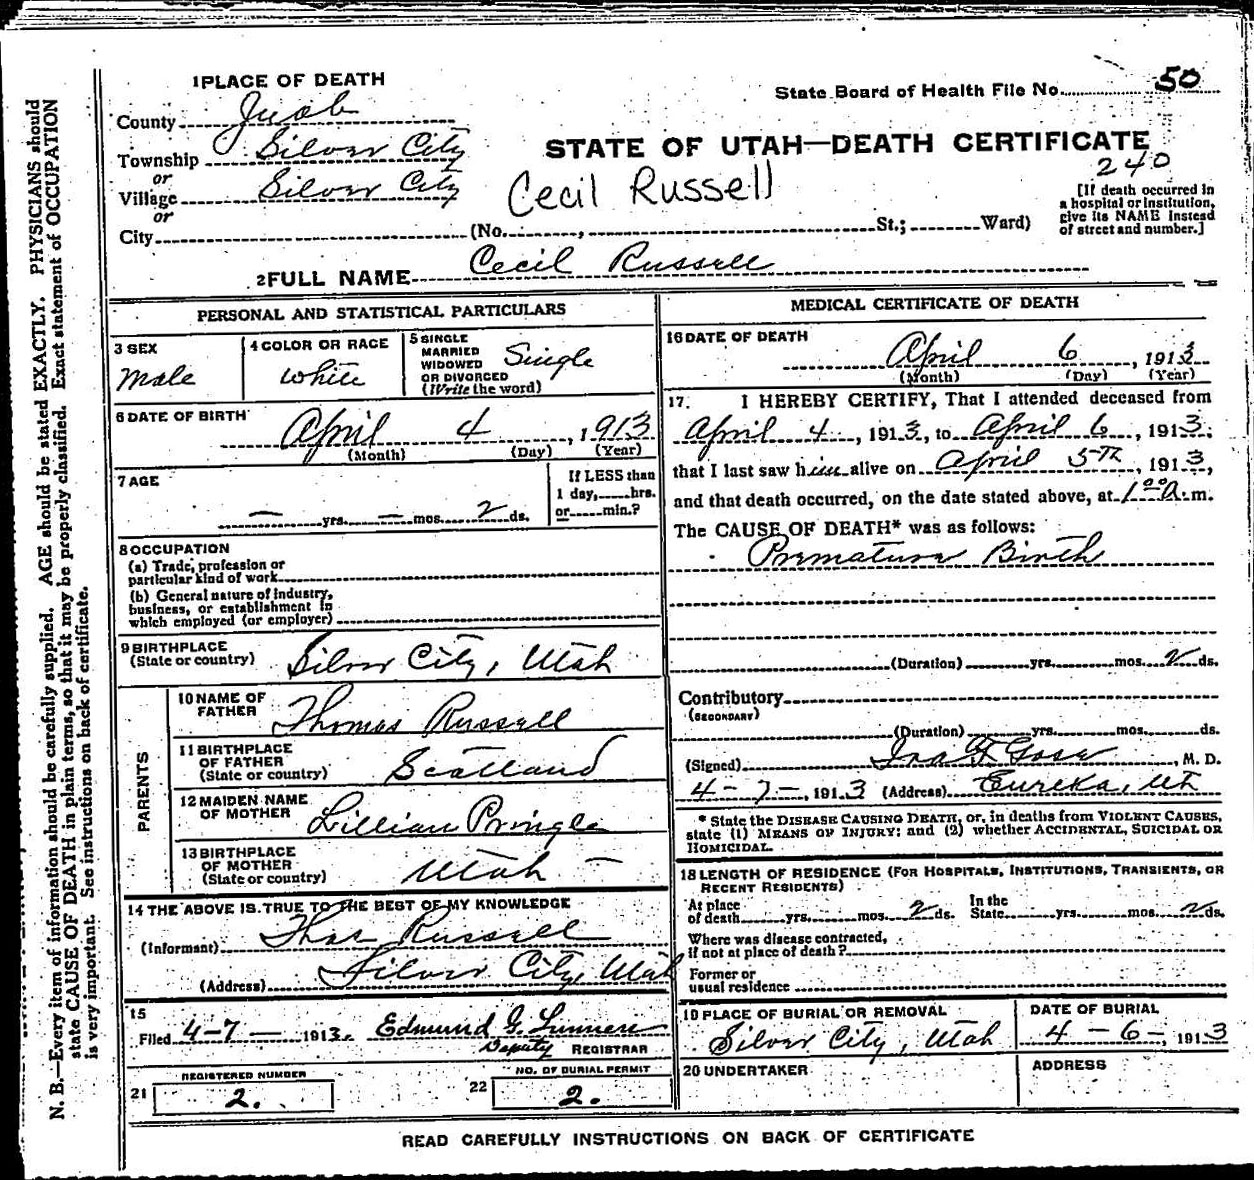 1 PLACE OF DEATH
County Juab
Township Silver City
or
Village Silver City
or
City (No. , St.; Ward)
State Board of Health File No. 50
STATE OF UTAH—DEATH CERTIFICATE
240
Cecil Russell
[If death occurred in
a hospital or institution,
give its NAME instead
of street and number.]
2 FULL NAME Cecil Russell
PERSONAL AND STATISTICAL PARTICULARS
3 SEX
Male
4 COLOR OR RACE
White
5 SINGLE
MARRIED
WIDOWED
OR DIVORCED
(Write the word)
Single
6 DATE OF BIRTH
April 4, 1913
(Month) (Day) (Year)
7 AGE
— yrs. — mos. 2 ds.
If LESS than
1 day, hrs.
or min.?
8 OCCUPATION
(a) Trade, profession or
particular kind of work
(b) General nature of industry,
business, or establishment in
which employed (or employer)
9 BIRTHPLACE
(State or country) Silver City, Utah
PARENTS
10 NAME OF
FATHER Thomas Russell
11 BIRTHPLACE
OF FATHER
(State or country) Scotland
12 MAIDEN NAME
OF MOTHER Lillian Pringle
13 BIRTHPLACE
OF MOTHER
(State or country) Utah —
14 THE ABOVE IS TRUE TO THE BEST OF MY KNOWLEDGE
(Informant) Thos Russell
(Address) Silver City, Utah
15
Filed 4-7- 1913. Edmund G.
Deputy REGISTRAR
REGISTERED NUMBER
21 2.
NO. OF BURIAL PERMIT
22 2.
MEDICAL CERTIFICATE OF DEATH
16 DATE OF DEATH
April 6, 1913
(Month) (Day) (Year)
17. I HEREBY CERTIFY, That I attended deceased from
April 4, 1913, to April 6, 1913,
that I last saw him alive on April 5th, 1913,
and that death occurred, on the date stated above, at 1 00 a. m.
The CAUSE OF DEATH* was as follows:
Premature Birth
(Duration) yrs. mos. 2 ds.
Contributory
(SECONDARY)
(Duration) yrs. mos. ds.
(Signed) Ira , M. D.
4-7-, 1913 (Address) Eureka, Ut
* State the DISEASE CAUSING DEATH, or, in deaths from VIOLENT CAUSES,
state (1) MEANS OF INJURY; and (2) whether ACCIDENTAL, SUICIDAL OR
HOMICIDAL.
18 LENGTH OF RESIDENCE (FOR HOSPITALS, INSTITUTIONS, TRANSIENTS, OR
RECENT RESIDENTS)
At place
of death yrs. mos. 2 ds.
In the
State yrs. mos. 2 ds.
Where was disease contracted,
if not at place of death?
Former or
usual residence
19 PLACE OF BURIAL OR REMOVAL
Silver City, Utah
DATE OF BURIAL
4-6-, 1913
20 UNDERTAKER
ADDRESS
READ CAREFULLY INSTRUCTIONS ON BACK OF CERTIFICATE
N. B.—Every item of information should be carefully supplied. AGE should be stated EXACTLY. PHYSICIANS should
state CAUSE OF DEATH in plain terms, so that it may be properly classified. Exact statement of OCCUPATION
is very important. See instructions on back of certificate.